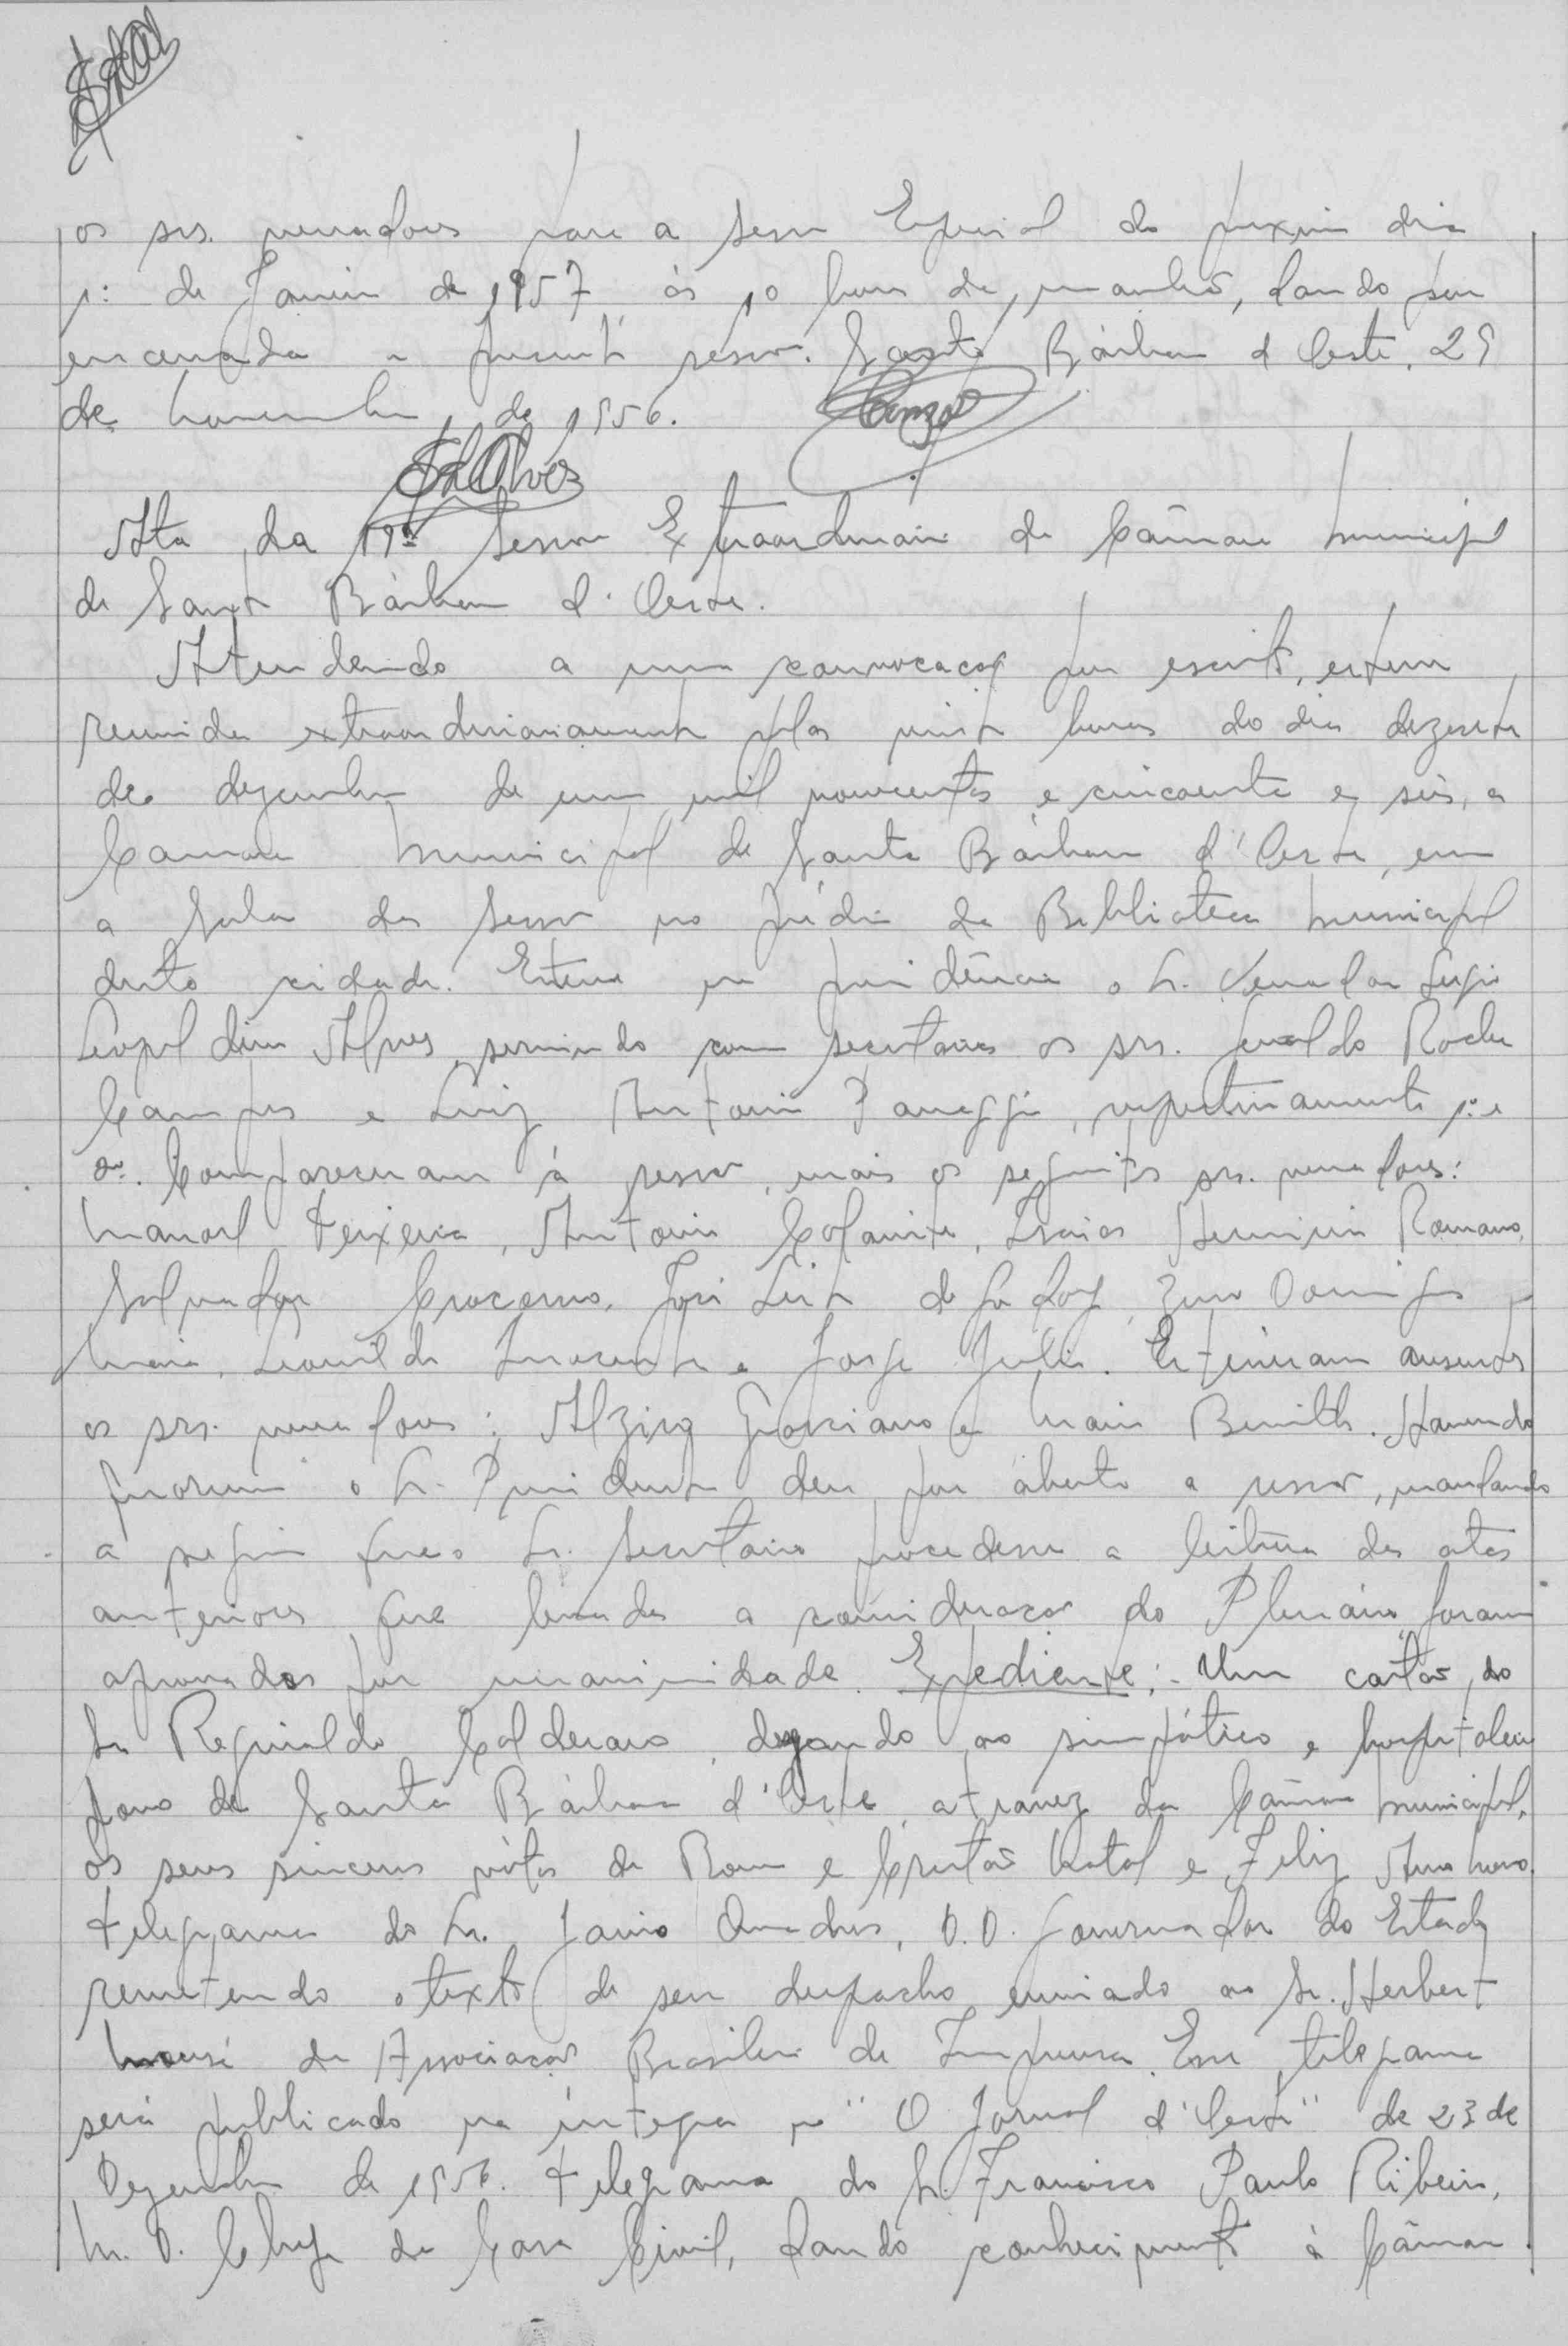 os srs. vereadores para a sessão Especial do proximo dia
1º de Janeiro de 1957, ás 10 horas da manhã, dando por
encerrada a presente sessão. Santa Bárbara d'Oeste, 29
de novembro de 1956.
Ata da 19ª Sessão Extraordinaria da Câmara Municipal
de Santa Bárbara d'Oeste.
Atendendo a uma convocação por escrito, esteve
reunida extraordinariamente pelas vinte horas do dia dezessete
de dezembro de um mil novecentos e cincoenta e seis, a
Camara Municipal de Santa Bárbara d'Oeste, em
a Sala das Sessões no prédio da Biblioteca Municipal
desta cidade. Esteve na presidência o Sr. Vereador Sergio
Leopoldino Alves, servindo como secretarios os srs. Geraldo Rocha
Campos e Luiz Antonio Panaggio, respectivamente 1º e
2º. Compareceram á sessão, mais os seguintes srs. vereadores:
Manoel Teixeira, Antonio Isaias Herminio Romano,
Salvador José Leite de Godoy, Domingos
Maia, Leonildo e Jorge Julio. Estiveram ausentes
os srs. vereadores: Alzira Graciano e Mario Haven­do
quorum o Sr. Presidente deu por aberta a sessão, mandando
a seguir que o Sr. Secretario procedesse a leitura das atas
anteriores que levadas a consideração do Plenário foram
aprovadas por unanimidade. Expediente:- Um cartão, do
Sr. Reginaldo Calderaro, desejando ao simpático e hospitaleiro
povo de Santa Bárbara d'Oeste, atravez da Câmara Municipal,
os seus sinceros vótos de Bom e Cristão Natal e Feliz Ano Novo.
Telegrama do Sr. Janio Quadros, D.D. Governador do Estado
remetendo o texto de seu despacho enviado ao Sr. Herbert
da Associação Brasileira de Imprensa. Esse telegrama
será publicado na íntegra no "O Jornal d'Oeste" de 23 de
Dezembro de 1956. Telegrama do Sr. Francisco Paulo Ribeiro,
M. D. Chefe da Casa Civil, dando conhecimento à Câmara